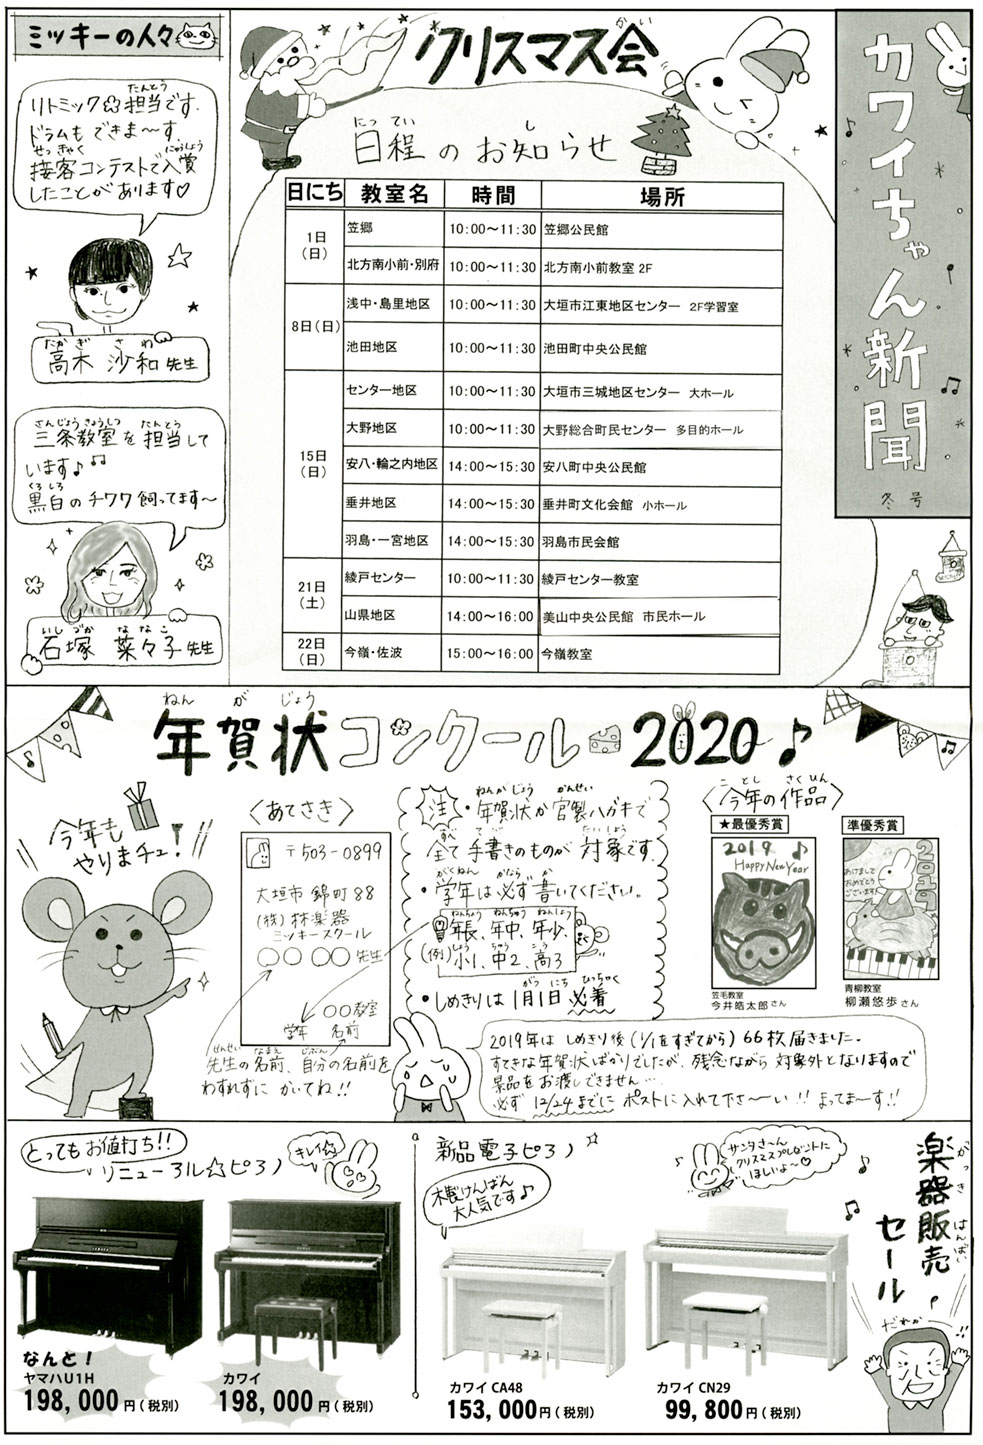 カワイちゃん新聞
冬号
クリスマス会
かい
日程のお知らせ
にってい
し
日にち 教室名 時間 場所
1日(日) 笠郷 10:00～11:30 笠郷公民館
北方南小前・別府 10:00～11:30 北方南小前教室 2F
8日(日) 浅中・島里地区 10:00～11:30 大垣市江東地区センター 2F学習室
池田地区 10:00～11:30 池田町中央公民館
15日(日) センター地区 10:00～11:30 大垣市三城地区センター 大ホール
大野地区 10:00～11:30 大野総合町民センター 多目的ホール
安八・輪之内地区 14:00～15:30 安八町中央公民館
垂井地区 14:00～15:30 垂井町文化会館 小ホール
羽島・一宮地区 14:00～15:30 羽島市民会館
21日(土) 綾戸センター 10:00～11:30 綾戸センター教室
山県地区 14:00～16:00 美山中央公民館 市民ホール
22日(日) 今嶺・佐波 15:00～16:00 今嶺教室
ミッキーの人々
たんとう
リトミック☆担当です。
ドラムもできま〜す。
せっきゃく にゅうしょう
接客コンテストで入賞
したことがあります♡
たかぎ さわ
高木 沙和先生
さんじょうきょうしつ たんとう
三条教室を担当して
います♪♫
くろしろ
黒白のチワワ飼ってます〜
いしづか ななこ
石塚 菜々子先生
ねんがじょう
年賀状コンクール2020♪
今年も
やりまチュ!
〈あてさき〉
〒503-0899
大垣市錦町88
(株)林楽器
ミッキースクール
○○○○先生
○○教室
学年 名前
せんせい なまえ じぶん なまえ
先生の名前、自分の名前を
わすれずに かいてね!!
注
ねんがじょう かんせい
・年賀状か官製ハガキで
すべ てが たいしょう
全て手書きのものが対象です。
がくねん かなら か
・学年は必ず書いてください。
ねんちょう ねんちゅう ねんしょう
年長、年中、年少、
(例)
しょう ちゅう こう
小1、中2、高3
など
がつ にち ひっちゃく
・しめきりは1月1日必着
ことし さくひん
〈今年の作品〉
★最優秀賞
2019
Happy New Year
笠毛教室
今井皓太郎さん
準優秀賞
あけまして
おめでとう
ございます
2019
青柳教室
柳瀬悠歩さん
2019年は しめきり後(1/1をすぎてから)66枚届きました。
すてきな年賀状ばかりでしたが、残念ながら対象外となりますので
景品をお渡しできません…
必ず12/24までに ポストに入れて下さ〜い!! まってま〜す!!
がっきはんばい
楽器販売
セール
だれか
!!
とってもお値打ち!!
リニューアル☆ピアノ
キレイ☆
なんと!
ヤマハU1H
198,000円(税別)
カワイ
198,000円(税別)
新品電子ピアノ
木製けんばん
大人気です♪
サンタさ〜ん
クリスマスプレゼントに
ほしいよ〜♡
カワイ CA48
153,000円(税別)
カワイ CN29
99,800円(税別)